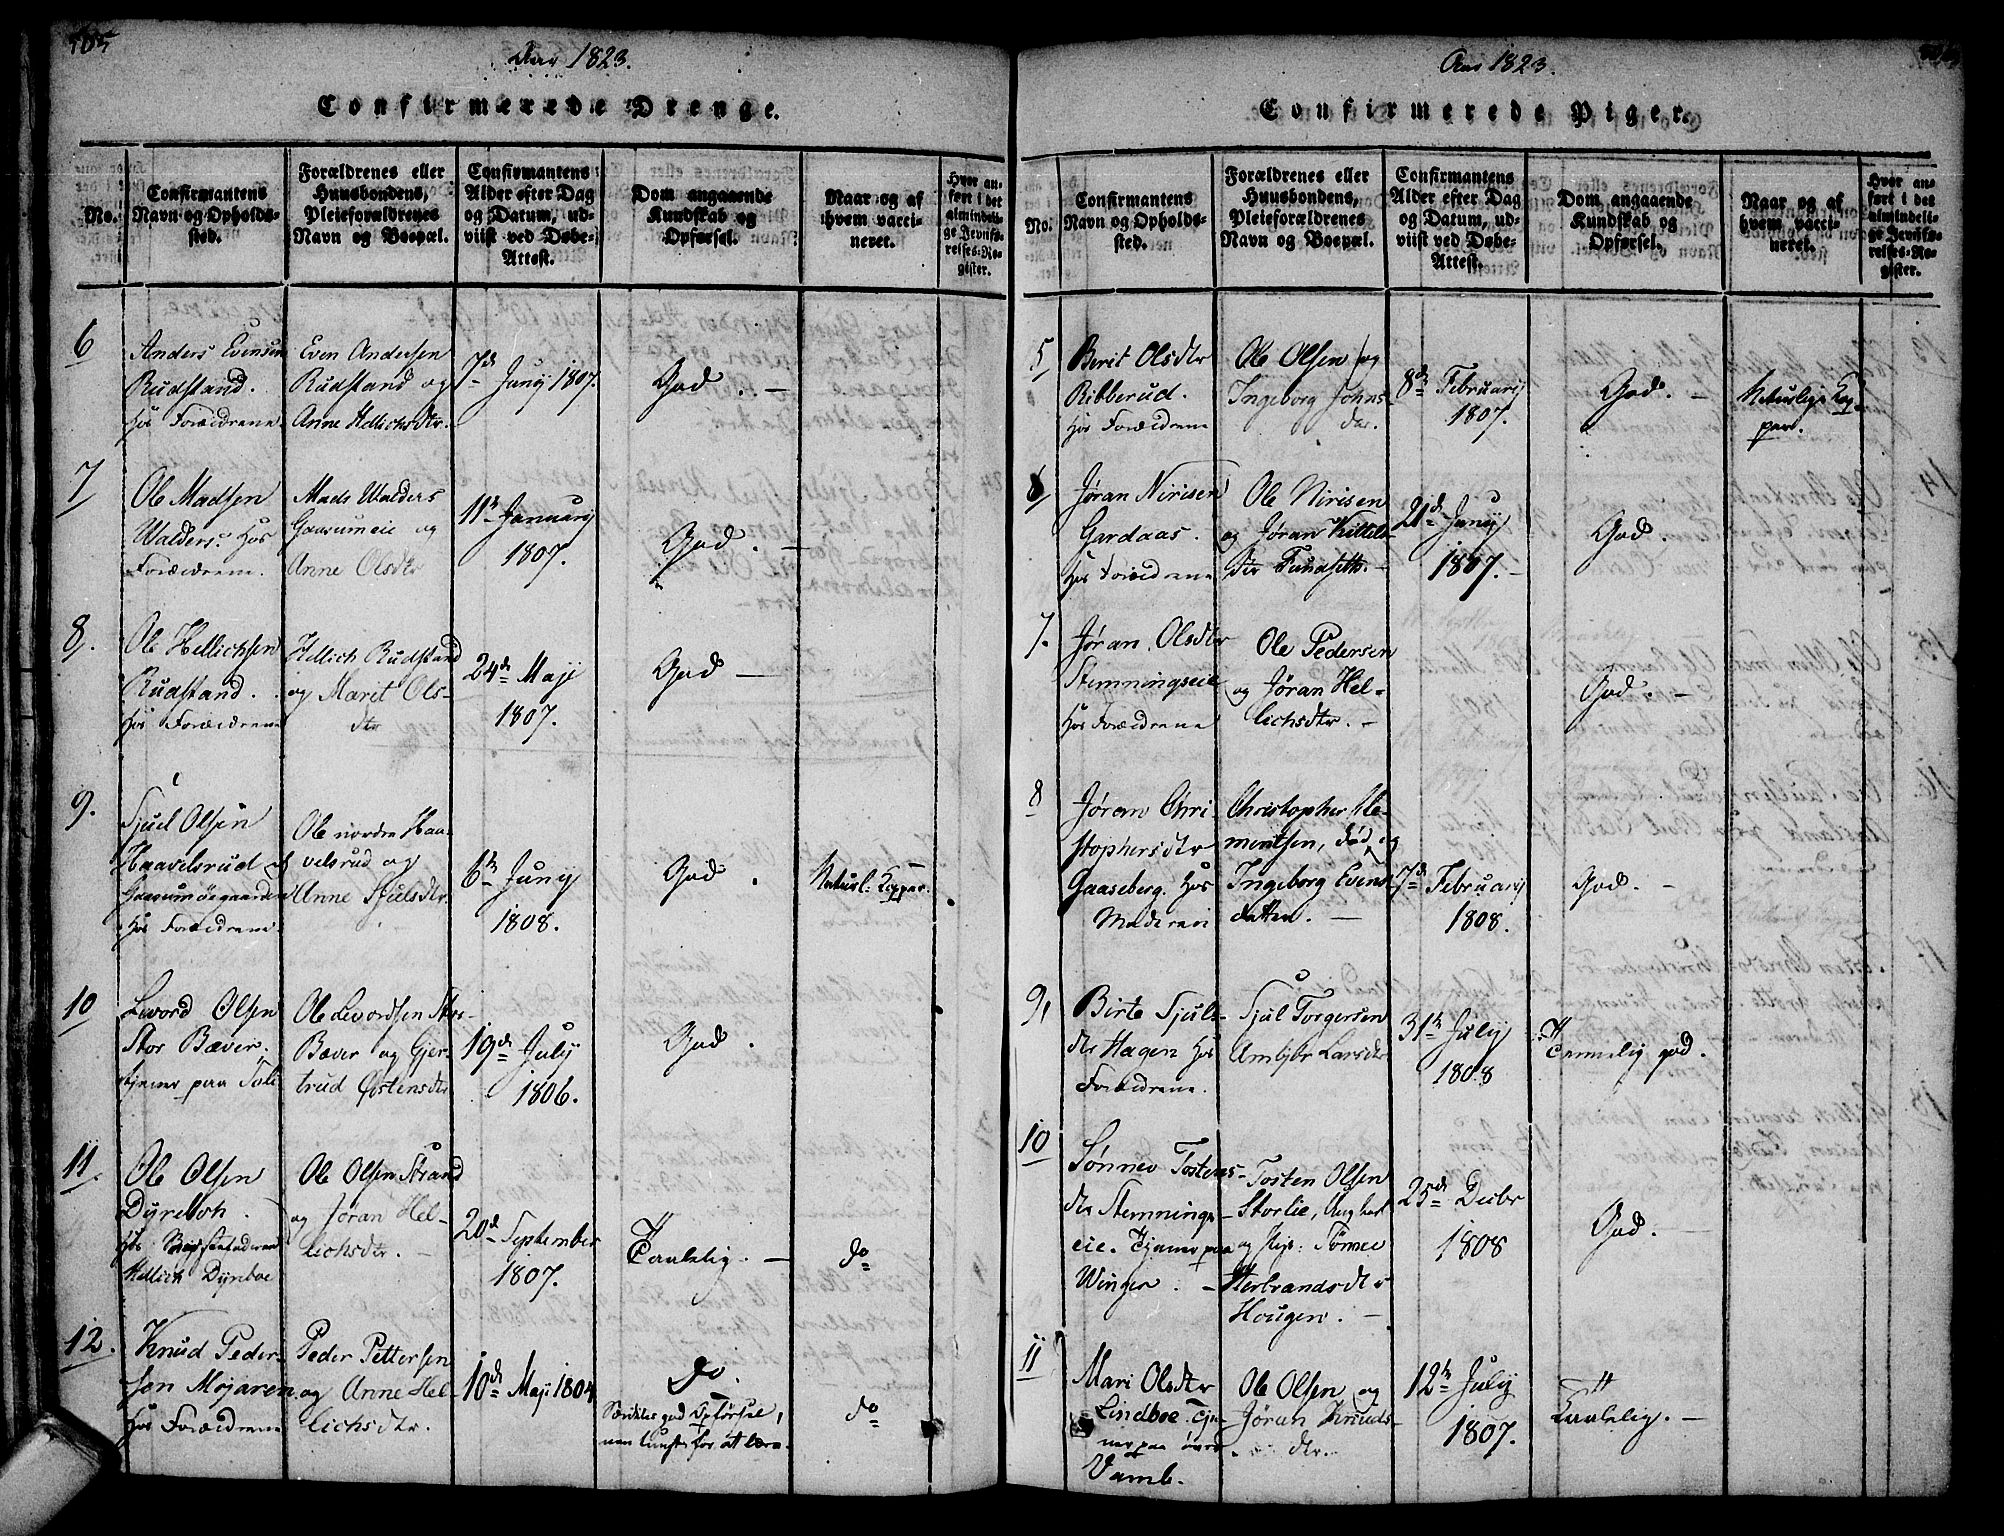 Aar 1823.
Confirmerede Drenge.
No.
Confirmantens Navn og Opholdssted.
Forældrenes eller Huusbondens, Pleieforældrenes Navn og Boepæl.
Confirmantens Alder efter Dag og Datum, udviist ved Døbe-Attest.
Dom angaaende Kundskab og Opførsel.
Naar og af hvem vaccineret.
Hvor anført i det almindelige Jevnførelses-Register.
6
Anders Evensen
Rudstand.
hos Forældrene
Even Andersen
Rudstand og
Anne Hellichsdtr.
7de Juny 1807.
God. —
7
Ole Madsen
Walders. hos
Forældrene.
Mads Walders
Gaarumeie og
Anne Olsdtr
11te Januarij
1807.
God. —
8.
Ole Hellichsen
Rudstand.
hos Forældrene
Hellich Rudstand
og Marit Ols-
dtr
24de Maji
1807.
God —
9.
Sjul Olsen
Haavelsrud
hos Forældrene.
Ole nordre Haa-
velsrud og
Anne Sjulsdtr.
6te Juny
1808.
God.
Naturl: Kopper.
10
Levord Olsen
Stor Bæver.
tjener paa
Ole Levordsen Stor-
Bæver og Gjer-
trud Østensdtr
19de July
1806.
God.
11.
Ole Olsen
Dyreboh.
hos
Hellich Dyreboe
Ole Olsen Strand
og Jøran Hel-
lichsdtr. —
20de September
1807.
Taalelig. —
do
12.
Knud Peder-
sen Mojaren
hos Forældrene
Peder Pettersen
og Anne Hel-
lichsdtr.
10de Maji 1804
do.
Særdeles god Opførsel,
men for at lære.
do
Aar 1823.
Confirmerede Piger.
No.
Confirmantens Navn og Opholdssted.
Forældrenes eller Huusbondens, Pleieforældrenes Navn og Boepæl.
Confirmantens Alder efter Dag og Datum, udviist ved Døbe-Attest.
Dom angaaende Kundskab og Opførsel.
Naar og af hvem vaccineret.
Hvor anført i det almindelige Jevnførelses-Register.
5
Berit Olsdtr
Ribberud.
hos Forældrene
Ole Olsen og
Ingeborg Johns-
dtr.
8de Februarij
1807.
God. —
Naturlige Kop-
per.
6
Jøran Nirisen
Gardaas.
hos Forældrene
Ole Nirisen
og Jøran Kittils-
dtr Tundseth. —
21de Juny
1807. —
God.
7.
Jøran Olsdtr
Stemningseie
hos Forældrene
Ole Pedersen
og Jøran Hel-
lichsdtr. —
God. —
8
Jøran Chri-
stophersdtr
Gaaseberg. hos
Moderen
Christopher Kle-
mentsen, død, og
Ingeborg Evens-
datter. —
7de Februarij
1808.
God. —
9,
Birte Sjuls-
dtr Hagen hos
Forældrene.
Sjul Torgersen
Ambjør Larsdtr
31te July
1808
Temmelig god.
10
Sønnev Tostens-
dtr Stemnings-
eie. Tjener paa
Winger. —
Tosten Olsen
Storlie, Ungkarl
og Pige: Sønnev
Herbrandsdtr
Hougen. —
25de Decbr
1808
God. —
11
Mari Olsdtr
Lindboe. Tje-
ner paa øvre
Vamb.
Ole Olsen og
Jøran Knuds-
dtr.
12te July
1807.
Taalelig. —